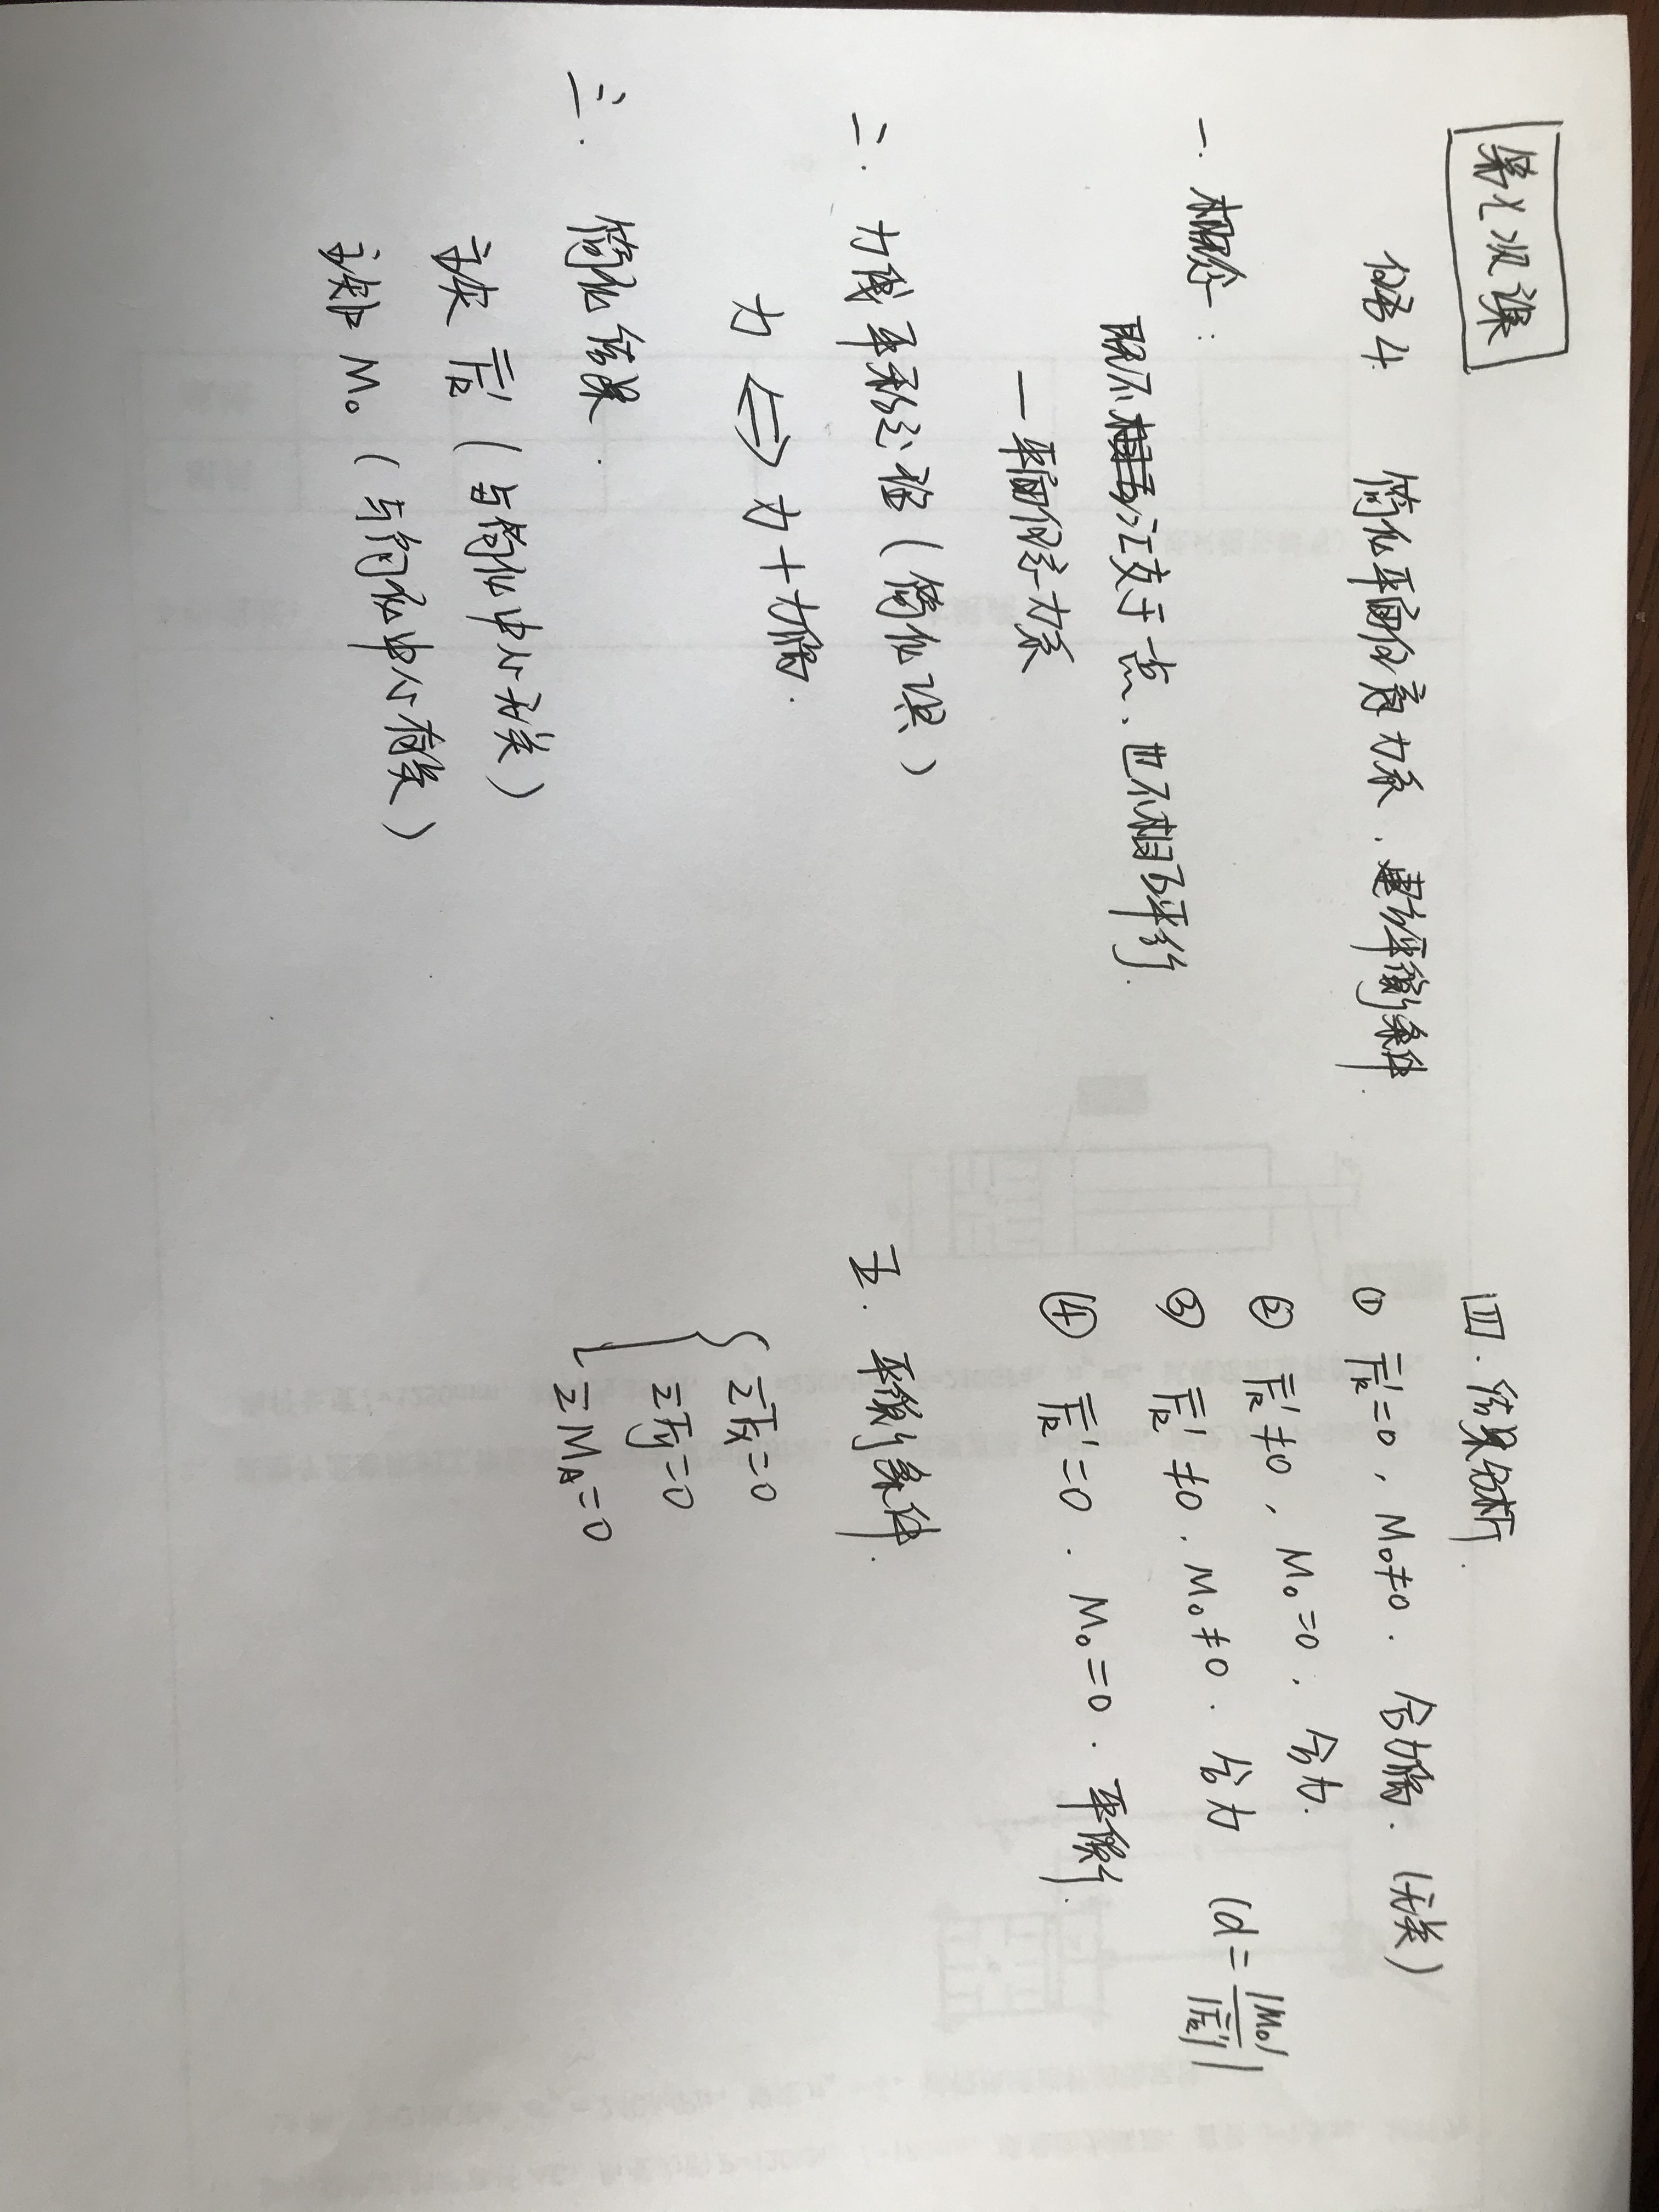 第七次课
任务4 简化平面任意力系、建立平衡条件.
一. 概念:
既不汇交于一点、也不相互平行.
—平面任意力系
二. 力线平移定理(简化工具)
力 ⟺ 力+力偶.
三. 简化结果.
主矢 F̅R' (与简化中心无关)
主矩 Mo (与简化中心有关)
四. 结果分析.
① F̅R'=0, Mo≠0. 合力偶. (无关)
② F̅R'≠0, Mo=0. 合力.
③ F̅R'≠0. Mo≠0. 合力 (d=|Mo|/|F̅R'|)
④ F̅R'=0. Mo=0. 平衡.
五. 平衡条件.
ΣFx=0
ΣFy=0
ΣMA=0